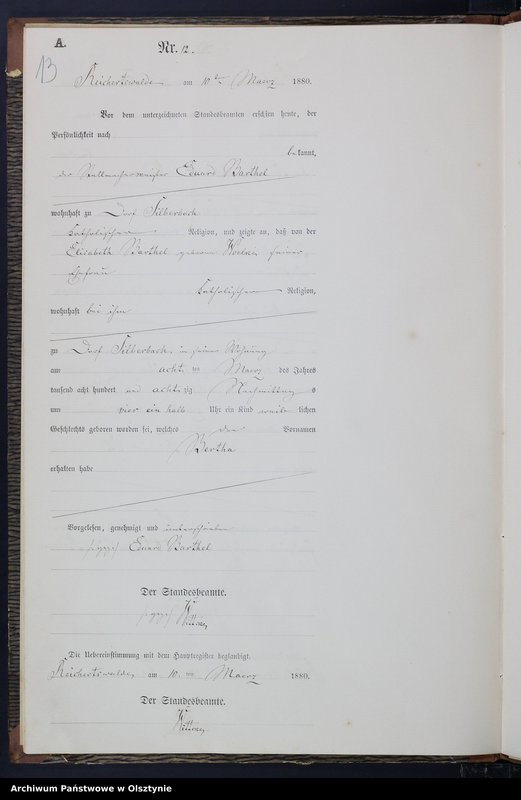 A.
Nr. 12.
13
Reichertswalde am 10ten Maerz 1880.
Vor dem unterzeichneten Standesbeamten erschien heute, der
Persönlichkeit nach
bekannt,
der Stellmachermeister Eduard Barthel
wohnhaft zu Dorf Silberbach
katholischer Religion, und zeigte an, daß von der
Elisabeth Barthel geborene seiner
Ehefrau
katholischer Religion,
wohnhaft bei ihm
zu Dorf Silberbach, in seiner Wohnung
am achten Maerz des Jahres
tausend acht hundert und achtzig Nachmittags
um vier ein halb Uhr ein Kind weiblichen
Geschlechts geboren worden sei, welches den Vornamen
Bertha
erhalten habe
Vorgelesen, genehmigt und unterschrieben
gez. Eduard Barthel
Der Standesbeamte.
gez.
Die Uebereinstimmung mit dem Hauptregister beglaubigt.
Reichertswalde, am 10. ten Maerz 1880.
Der Standesbeamte.
Archiwum Państwowe w Olsztynie